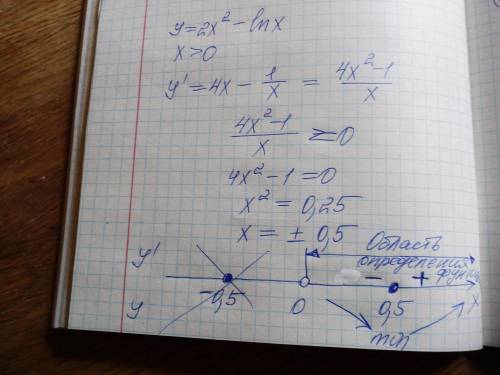 y = 2x² - ln x
x > 0
y' = 4x - 1/x = (4x² - 1)/x
(4x² - 1)/x = 0
4x² - 1 = 0
x² = 0,25
x = ± 0,5
Область
определения
y' - +
-0,5 0 0,5 x
y min